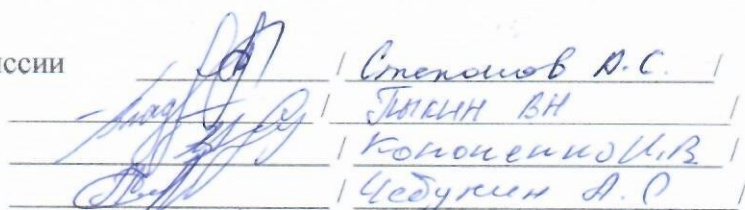 иссии / Степанов А.С. /
/ Пыкин ВН /
/ Кононенко И.В. /
/ Чебукин А.С /